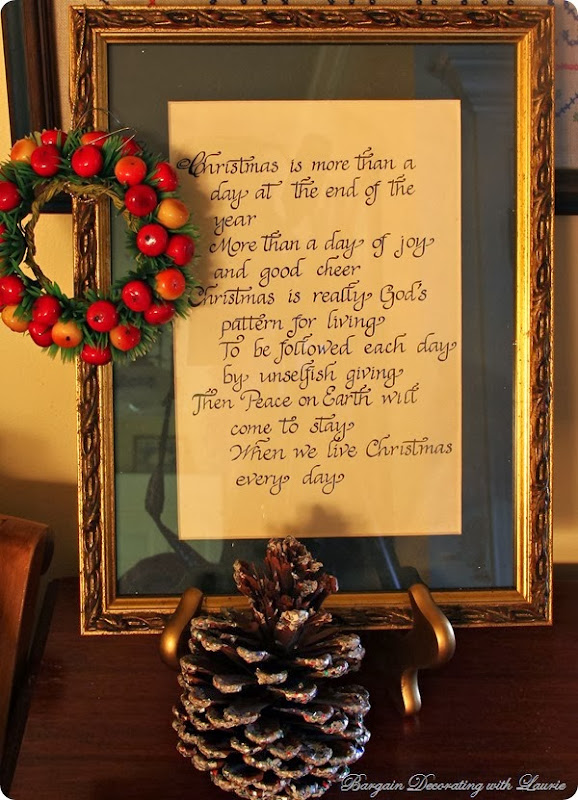 Christmas is more than a
day at the end of the
year
More than a day of joy
and good cheer
Christmas is really God's
pattern for living
To be followed each day
by unselfish giving
Then Peace on Earth will
come to stay
When we live Christmas
every day
Bargain Decorating with Laurie